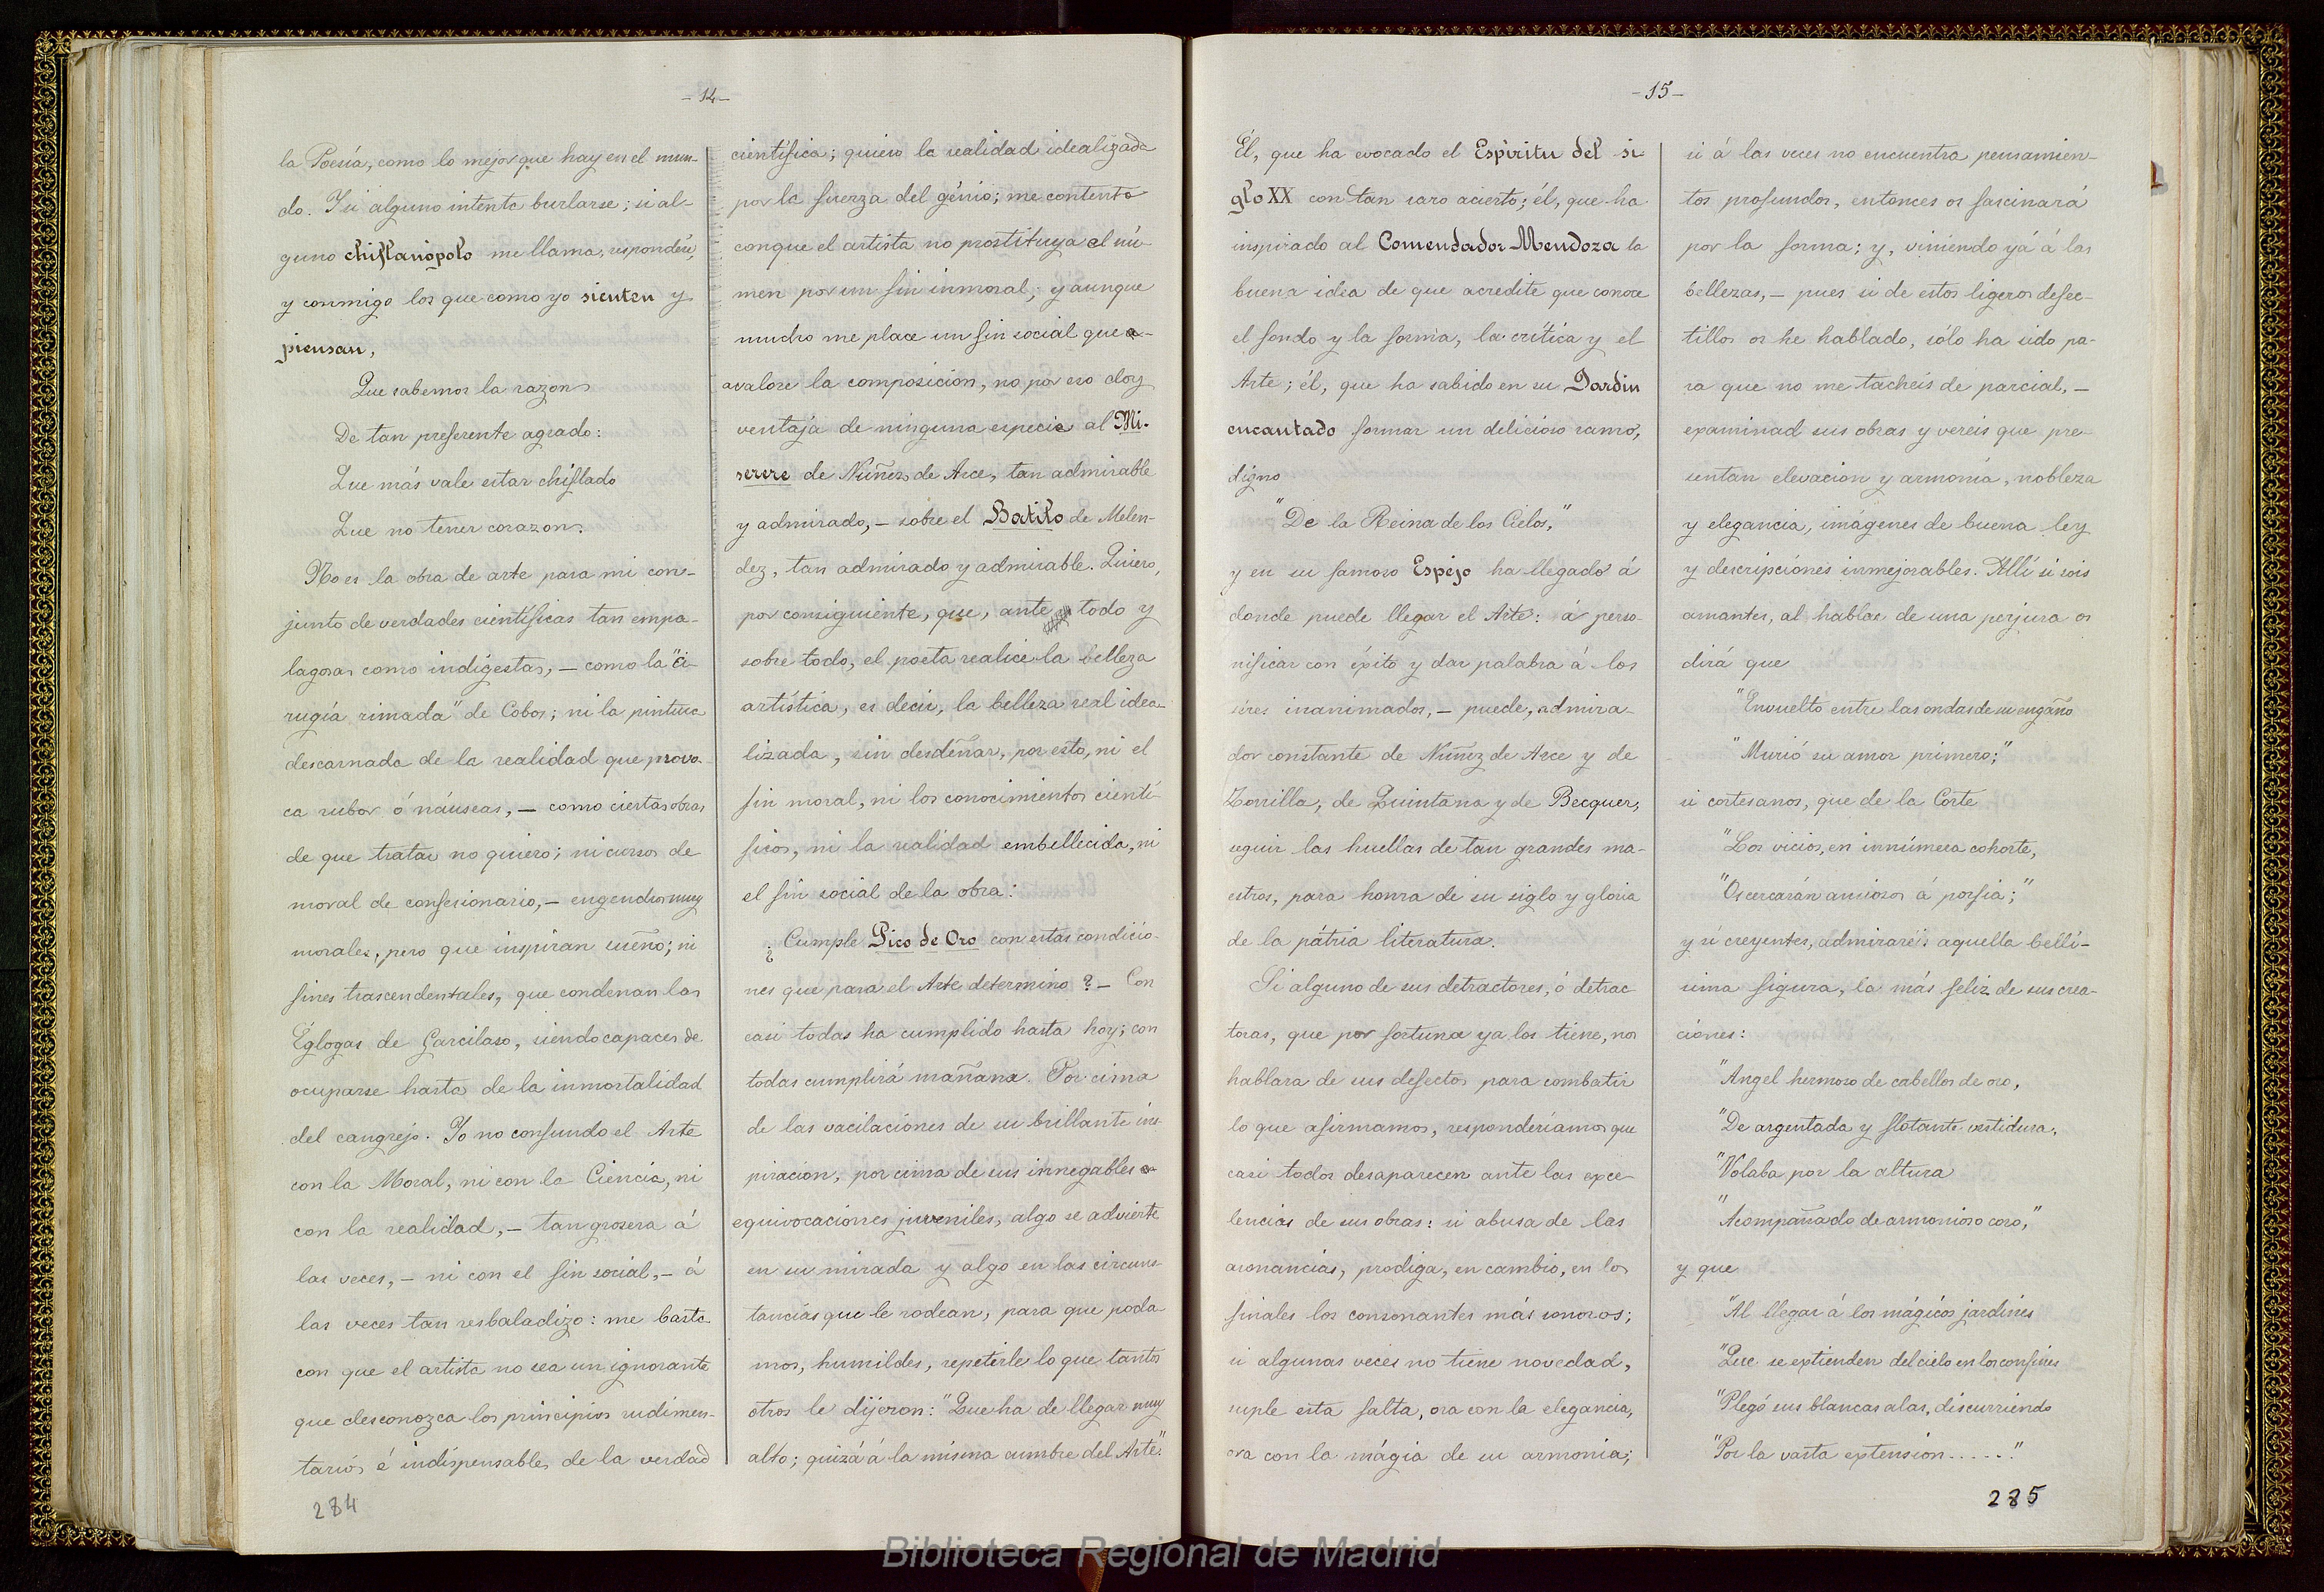 - 14 -
la Poesía, como lo mejor que hay en el mun-
do. Y si alguno intenta burlarse; si al-
guno chiflanópolo me llama, responderé,
y conmigo los que como yo sienten y
piensan,
Que sabemos la razon
De tan preferente agrado:
Que más vale estar chiflado
Que no tener corazon.
No es la obra de arte para mi con-
junto de verdades científicas tan empa-
lagosas como indigestas, — como la "Ci-
rugía rimada" de Cobos; ni la pintura
descarnada de la realidad que provo-
ca rubor ó náuseas, — como ciertas obras
de que tratar no quiero; ni cursos de
moral de confesionario, — engendros muy
morales, pero que inspiran sueño; ni
fines trascendentales, que condenan las
Églogas de Garcilaso, siendo capaces de
ocuparse hasta de la inmortalidad
del cangrejo. Yo no confundo el Arte
con la Moral, ni con la Ciencia, ni
con la realidad, — tan grosera á
las veces, — ni con el fin social, — á
las veces tan resbaladizo: me basta
con que el artista no sea un ignorante
que desconozca los principios rudimen-
tarios é indispensables de la verdad
284
científica; quiero la realidad idealizada
por la fuerza del génio; me contento
conque el artista no prostituya el nú-
men por un fin inmoral; y aunque
mucho me place un fin social que a-
avalore la composicion, no por eso doy
ventaja de ninguna especie al Mi-
serere de Nuñez de Arce, tan admirable
y admirado, — sobre el Batilo de Melen-
dez, tan admirado y admirable. Quiero,
por consiguiente, que, ante todo y
sobre todo, el poeta realice la belleza
artística, es decir, la belleza real idea-
lizada, sin desdeñar, por esto, ni el
fin moral, ni los conocimientos cientí-
ficos, ni la realidad embellecida, ni
el fin social de la obra:
¿Cumple Pico de Oro con estas condicio-
nes que para el Arte determino? — Con
casi todas ha cumplido hasta hoy; con
todas cumplirá mañana. Por cima
de las vacilaciones de su brillante ins-
piracion, por cima de sus innegables e-
equivocaciones juveniles, algo se advierte
en su mirada y algo en las circuns-
tancias que le rodean, para que poda-
mos, humildes, repetirle lo que tantos
otros le dijeron: "Que ha de llegar muy
alto; quizá á la misma cumbre del Arte".
- 15 -
Él, que ha evocado el Espíritu del si-
glo XX con tan raro acierto; él, que ha
inspirado al Comendador Mendoza la
buena idea de que acredite que conoce
el fondo y la forma, la crítica y el
Arte; él, que ha sabido en su Jardin
encantado formar un delicioso ramo,
digno
"De la Reina de los Cielos,"
y en su famoso Espejo ha llegado á
donde puede llegar el Arte: á perso-
nificar con éxito y dar palabra á los
séres inanimados, — puede, admira-
dor constante de Nuñez de Arce y de
Zorrilla, de Quintana y de Becquer,
seguir las huellas de tan grandes ma-
estros, para honra de su siglo y gloria
de la pátria literatura.
Si alguno de sus detractores, ó detrac-
toras, que por fortuna ya los tiene, nos
hablara de sus defectos para combatir
lo que afirmamos, responderíamos que
casi todos desaparecen ante las exce-
lencias de sus obras: si abusa de las
asonancias, prodiga, en cambio, en los
finales los consonantes más sonoros;
si algunas veces no tiene novedad,
suple esta falta, ora con la elegancia,
ora con la mágia de su armonia;
si á las veces no encuentra pensamien-
tos profundos, entonces os fascinará
por la forma; y, viniendo yá á las
bellezas, — pues si de estos ligeros defec-
tillos os he hablado, sólo ha sido pa-
ra que no me tacheis de parcial, —
examinad sus obras y vereis que pre-
sentan elevacion y armonía, nobleza
y elegancia, imágenes de buena ley
y descripciones inmejorables. Allí si sois
amantes, al hablar de una perjura os
dirá que
"Envuelto entre las ondas de su engaño
"Murió su amor primero;"
si cortesanos, que de la Corte
"Los vicios, en innúmera cohorte,
"Os cercarán ansiosos á porfia;"
y si creyentes, admirareis aquella bellí-
sima figura, la más feliz de sus crea-
ciones:
"Angel hermoso de cabellos de oro,
"De argentada y flotante vestidura,
"Volaba por la altura
"Acompañado de armonioso coro,"
y que
"Al llegar á los mágicos jardines
"Que se extienden del cielo en los confines
"Plegó sus blancas alas, discurriendo
"Por la vasta extension......"
285
Biblioteca Regional de Madrid